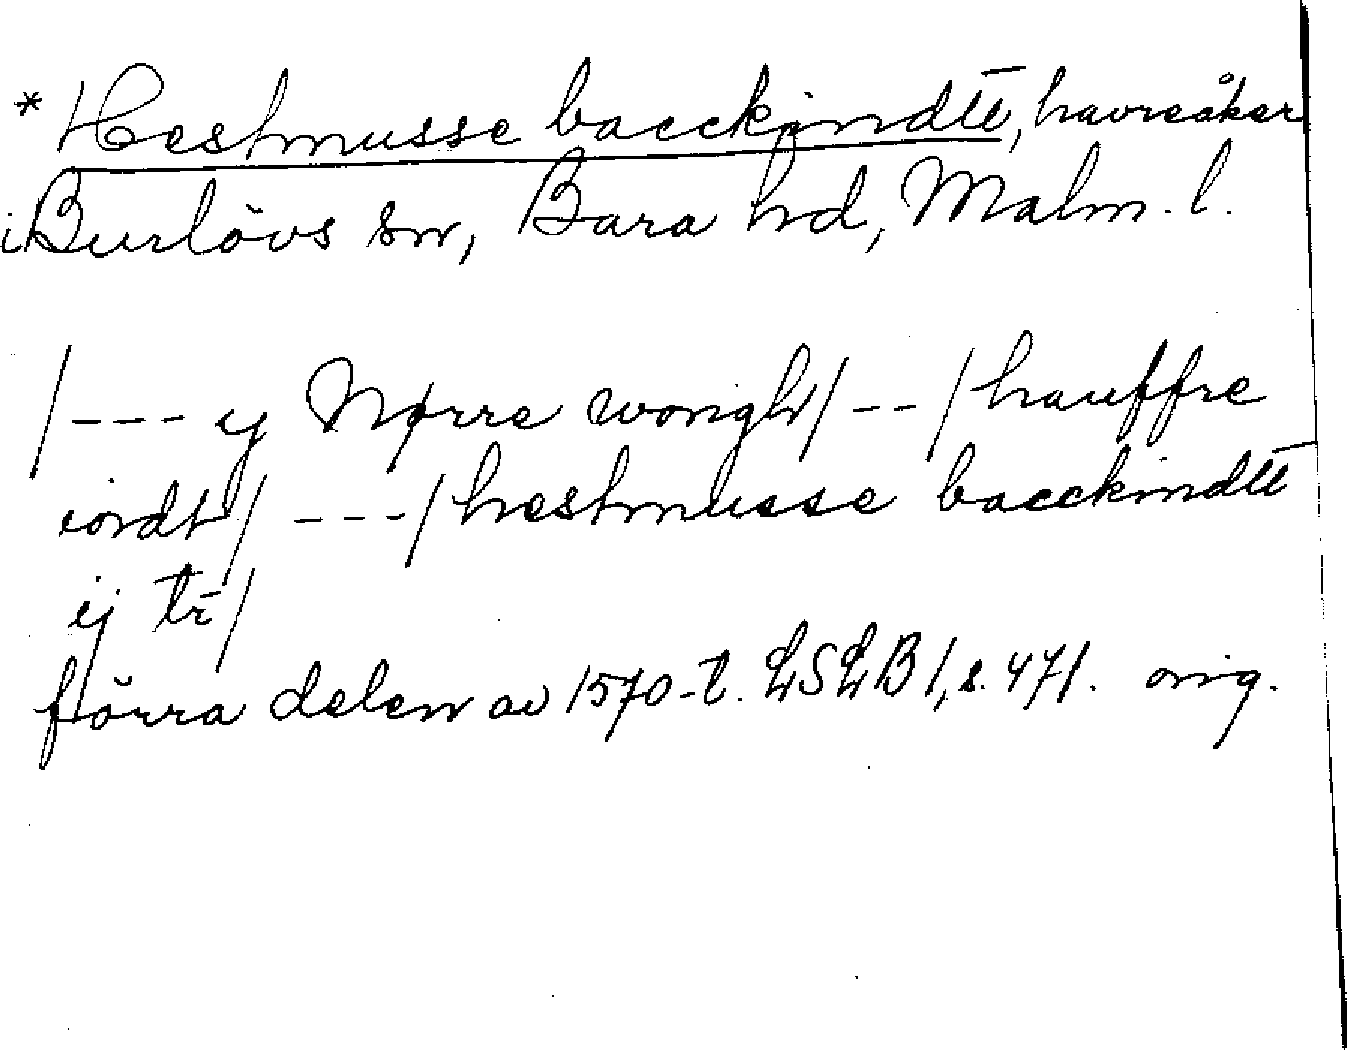 * Hestmusse bacckindtt̅, havreåker
i Burlövs sn, Bara hd, Malm. l.
/--- y Nørre wonght/--/hauffre
iordt/ ---/hestmusse bacckindtt̅
ij tr̅/
förra delen av 1570-t. LSLB 1, s. 471. orig.